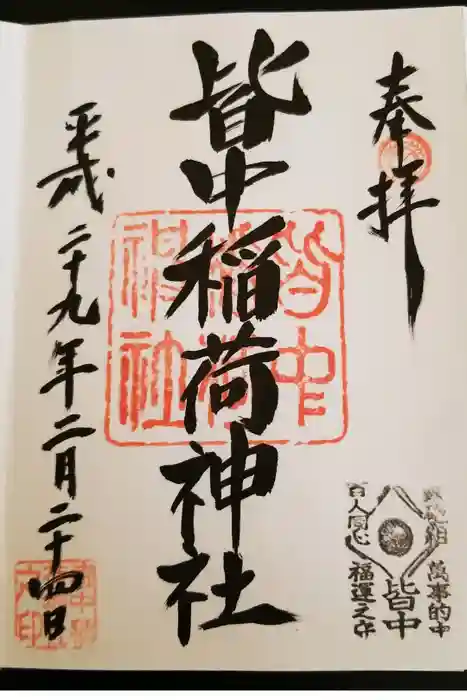 奉拝
皆中稲荷神社
平成二十九年二月二十四日
皆中稲荷神社
萬事的中
皆中
百人同心
福運之守